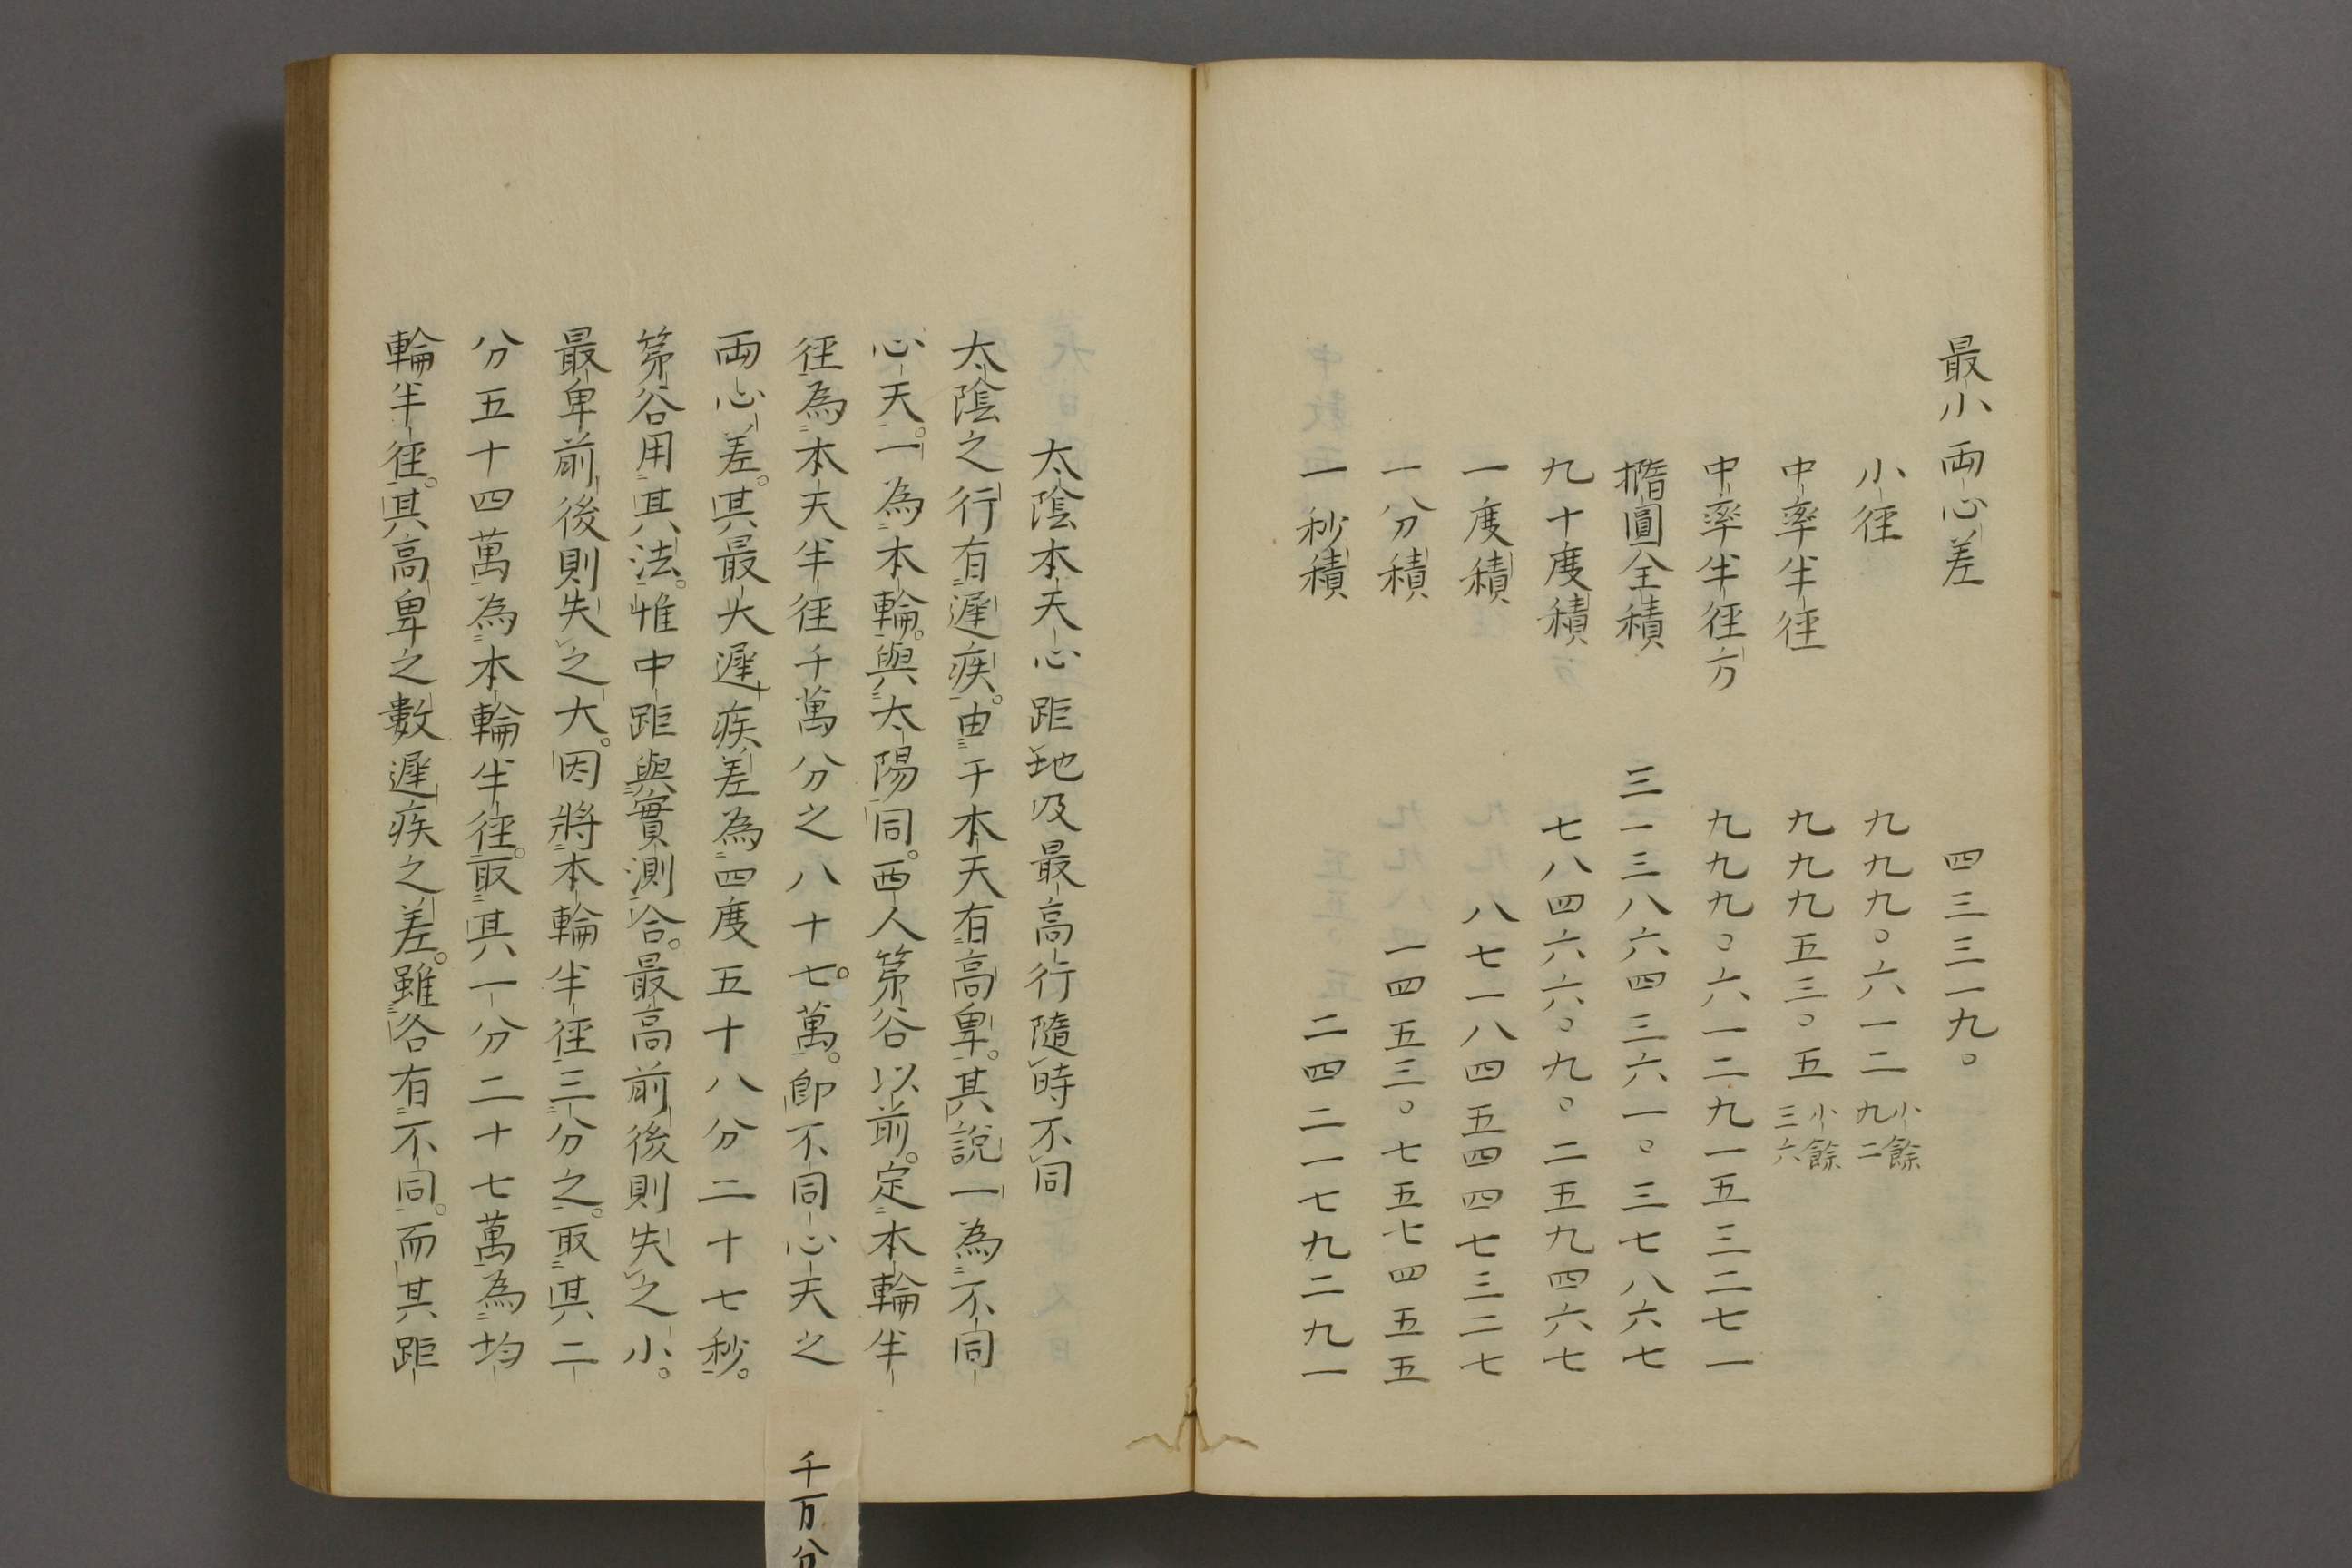 最小両心差　四三三一九〇
小徑　九九九〇六一二小餘九二
中率半徑　九九九五三〇五小餘三六
中率半徑方　九九九〇六一二九一五三二七一
撱圓全積　三一三八六四三六一〇三七八六七
九十度積　七八四六六〇九〇二五九四六七
一度積　八七一八四五四四七三二七
一分積　一四五三〇七五七四五五
一秒積　二四二一七九二九一
太陰本天心距地及最高行隨時不同
太陰之行有遲疾。由于本天有高卑。其說一為不同
心天。一為本輪。與太陽同。西人第谷以前。定本輪半
徑為本天半徑千萬分之八十七。萬。卽不同心天之
両心差。其最大遲疾差為四度五十八分二十七秒。
第谷用其法。惟中距與實測合。最高前後則失之小。
最卑前後則失之大。因將本輪半徑三分之。取其二
分五十四萬為本輪半徑。取其一分二十七萬為均
輪半徑。其高卑之數遲疾之差。雖各有不同。而其距
千万分